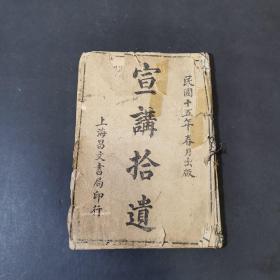 民國十五年春月出版
宣講拾遺
上海昌文書局印行